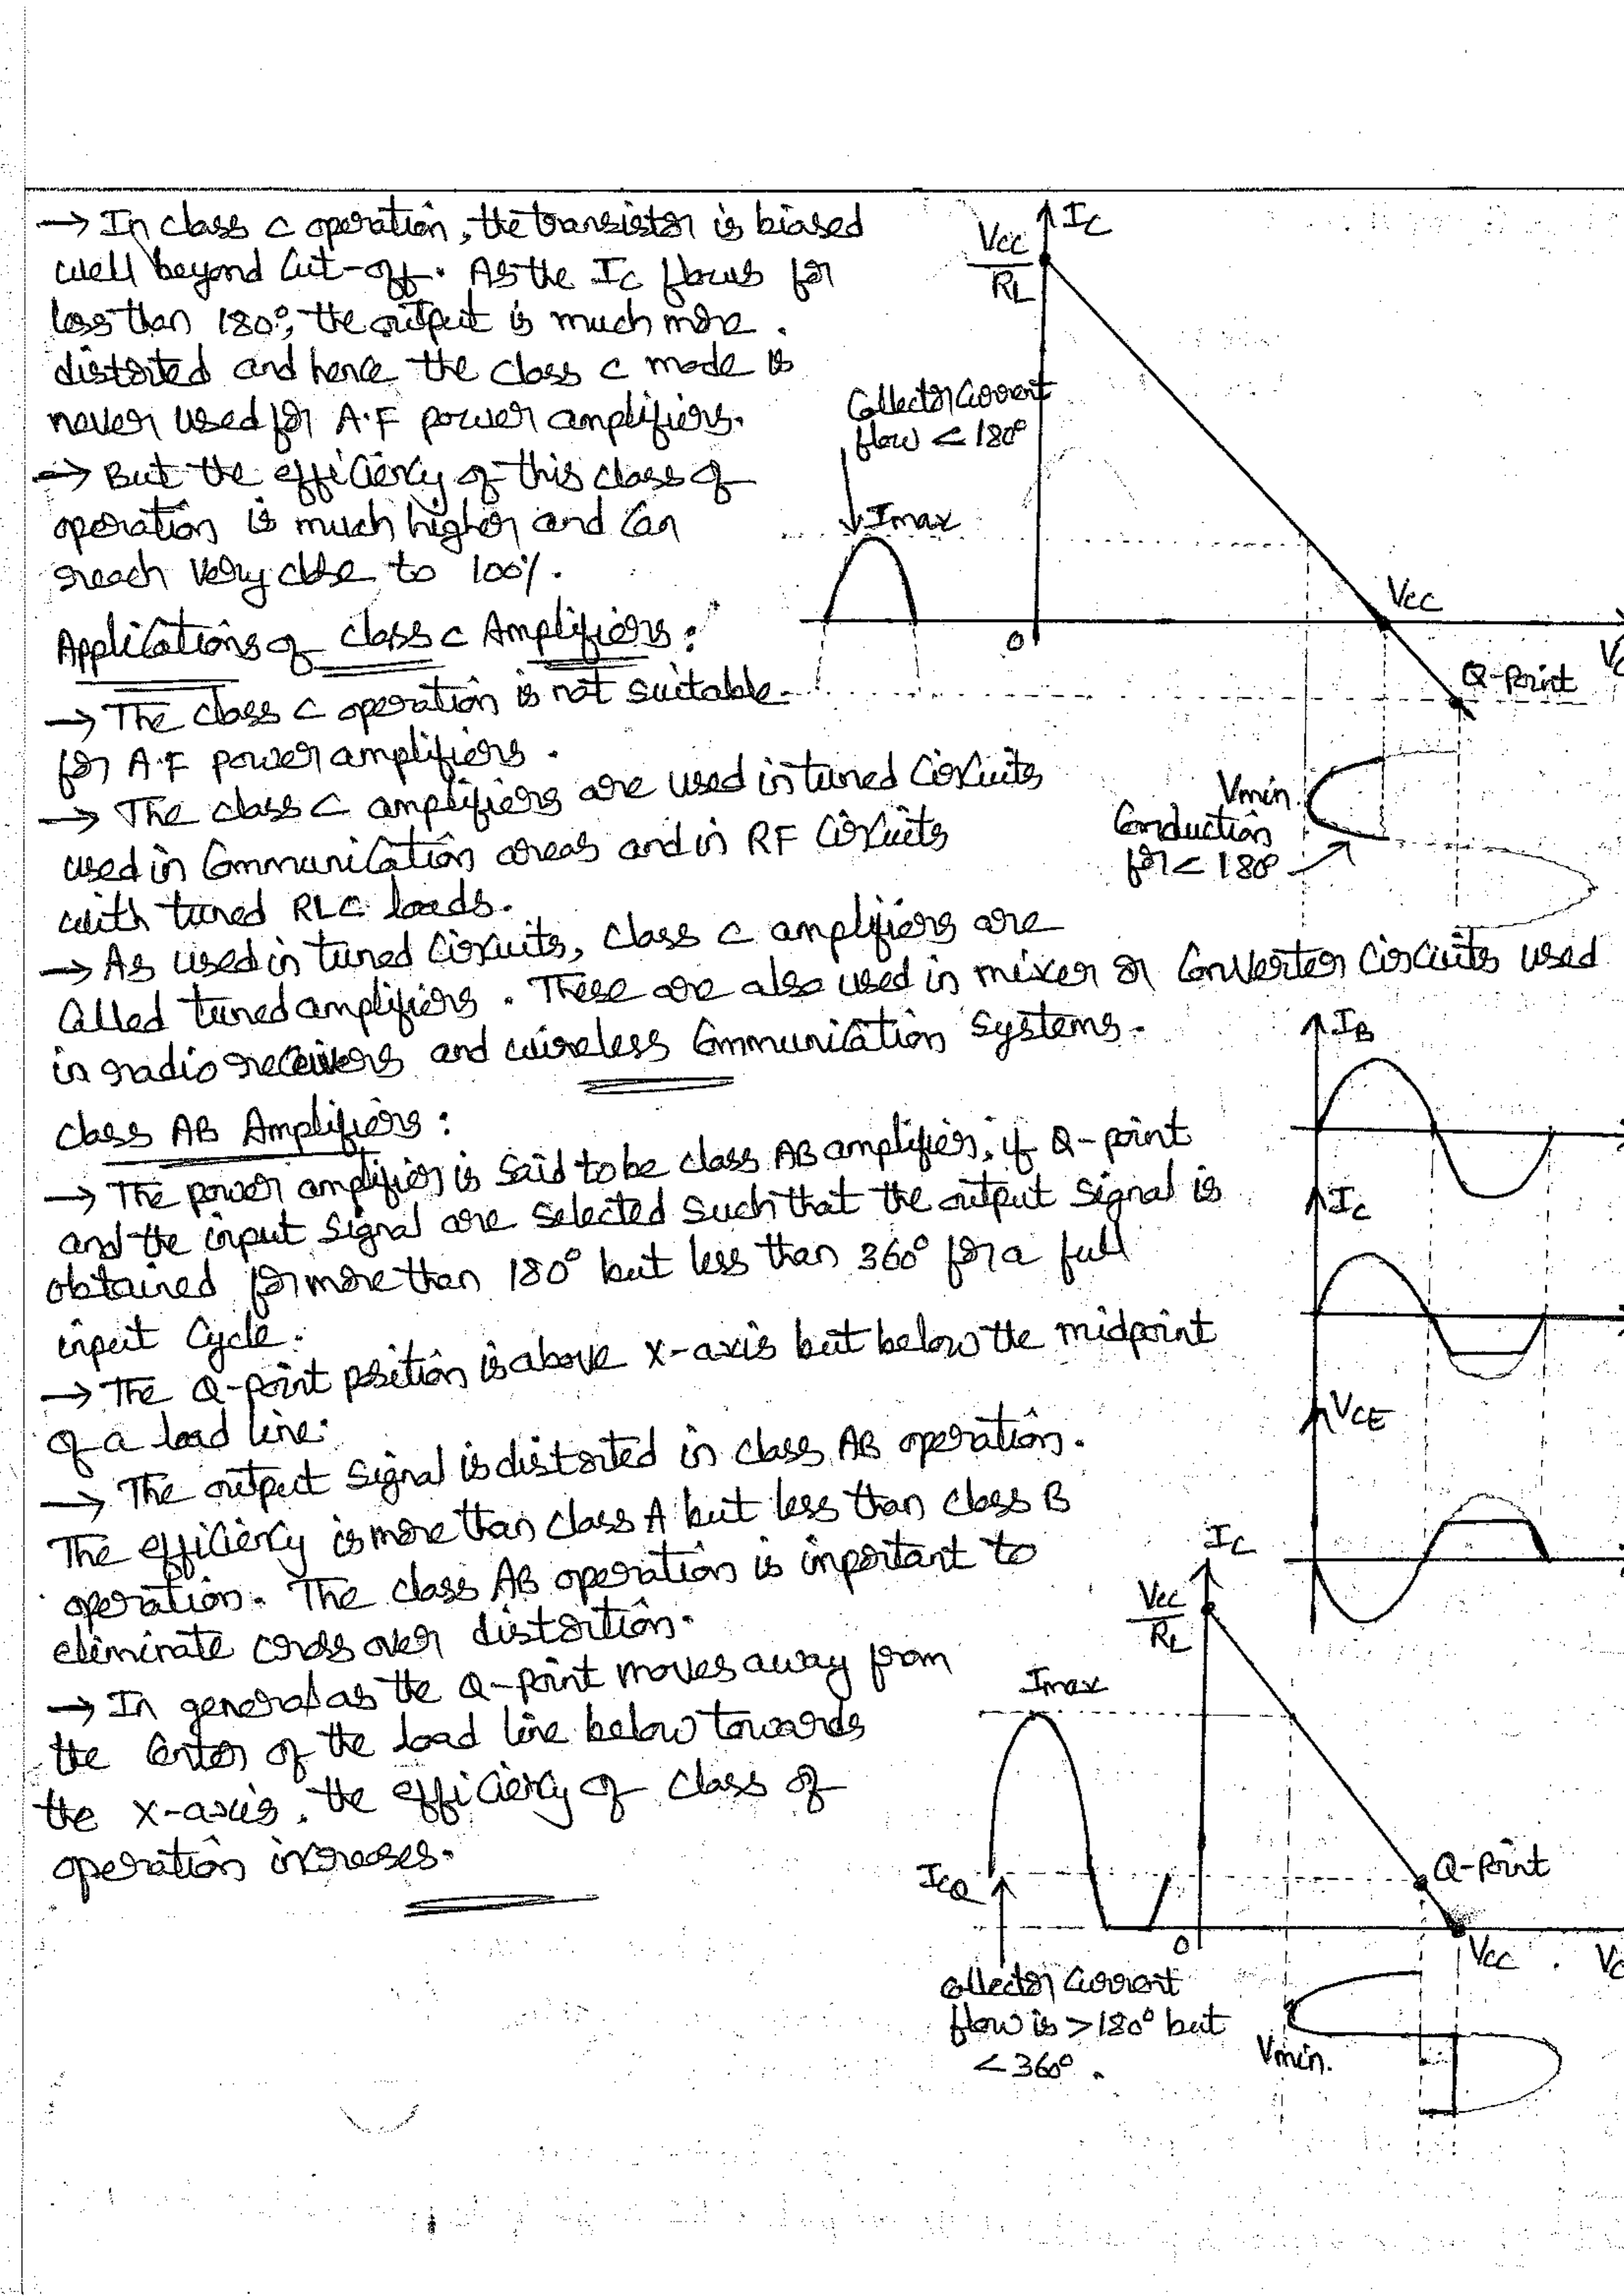 → In class C operation, the transistor is biased
well beyond Cut-off. As the Ic flows for
less than 180°, the output is much more
distorted and hence the class C mode is
never used for A.F power amplifiers.
→ But the efficiency of this class of
operation is much higher and can
reach very close to 100%.
Applications of class C Amplifiers:
→ The class C operation is not suitable
for A.F power amplifiers.
→ The class C amplifiers are used in tuned circuits
used in communication areas and in RF circuits
with tuned RLC loads.
→ As used in tuned circuits, class C amplifiers are
called tuned amplifiers. These are also used in mixer or converter circuits used
in radio receivers and wireless communication systems.
Ic
Vcc
RL
Collector Current
flow < 180°
Imax
0
Vcc
Q-Point
Vmin.
Conduction
for < 180°
Class AB Amplifiers:
→ The power amplifier is said to be class AB amplifier, if Q-point
and the input signal are selected such that the output signal is
obtained for more than 180° but less than 360° for a full
input cycle.
→ The Q-point position is above X-axis but below the midpoint
of a load line.
→ The output signal is distorted in class AB operation.
The efficiency is more than class A but less than class B
operation. The class AB operation is important to
eliminate cross over distortion.
→ In general as the Q-point moves away from
the center of the load line below towards
the X-axis, the efficiency of class of
operation increases.
IB
Ic
VCE
Ic
Vcc
RL
Imax
ICQ
Q-Point
0
Vcc
Collector Current
flow is >180° but
<360°.
Vmin.